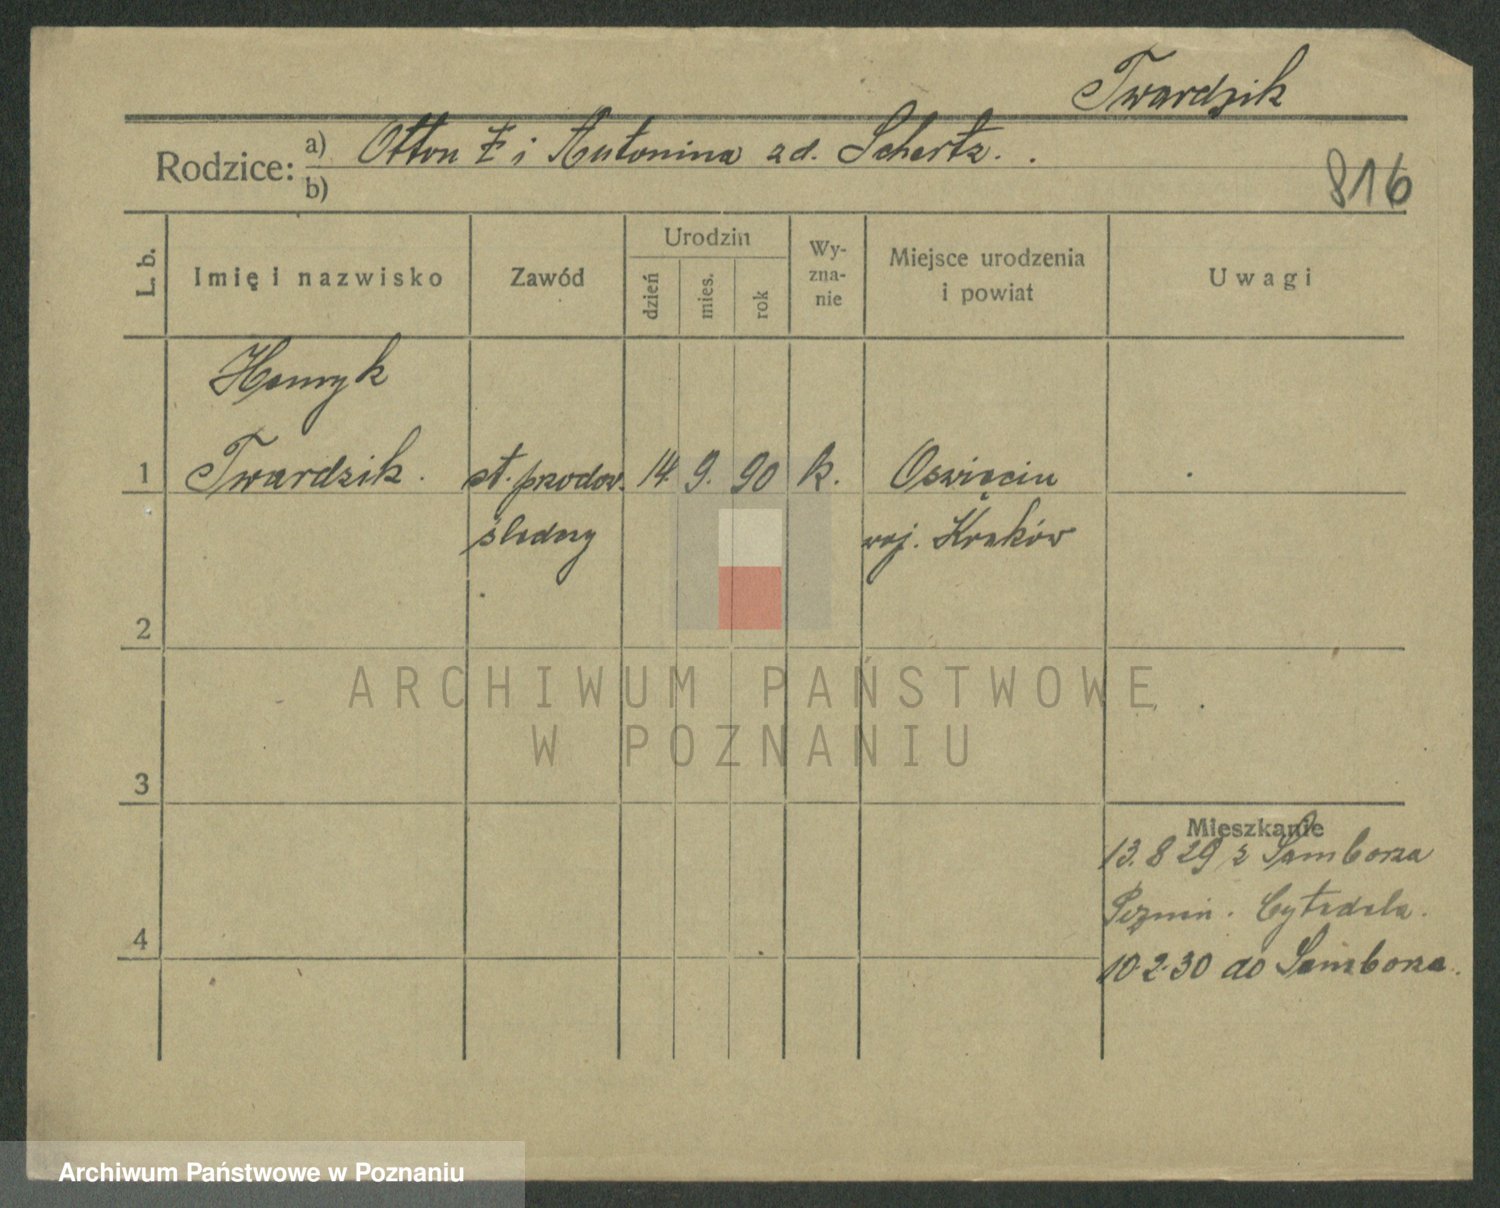 Twardzik
Rodzice: a) Otton i Antonina zd. Schertz.
b)
816
L. b.
Imię i nazwisko
Zawód
Urodzin
dzień
mies.
rok
Wy-
zna-
nie
Miejsce urodzenia
i powiat
Uwagi
Henryk
1 Twardzik. st. przodow. 14. 9. 90 k. Oświęcim
śledczy woj. Kraków
2
ARCHIWUM PAŃSTWOWE
W POZNANIU
3
Mieszkanie
13.8 29 z Sambora
Poznań. Cytadela.
4
10.2.30 do Sambora.
Archiwum Państwowe w Poznaniu